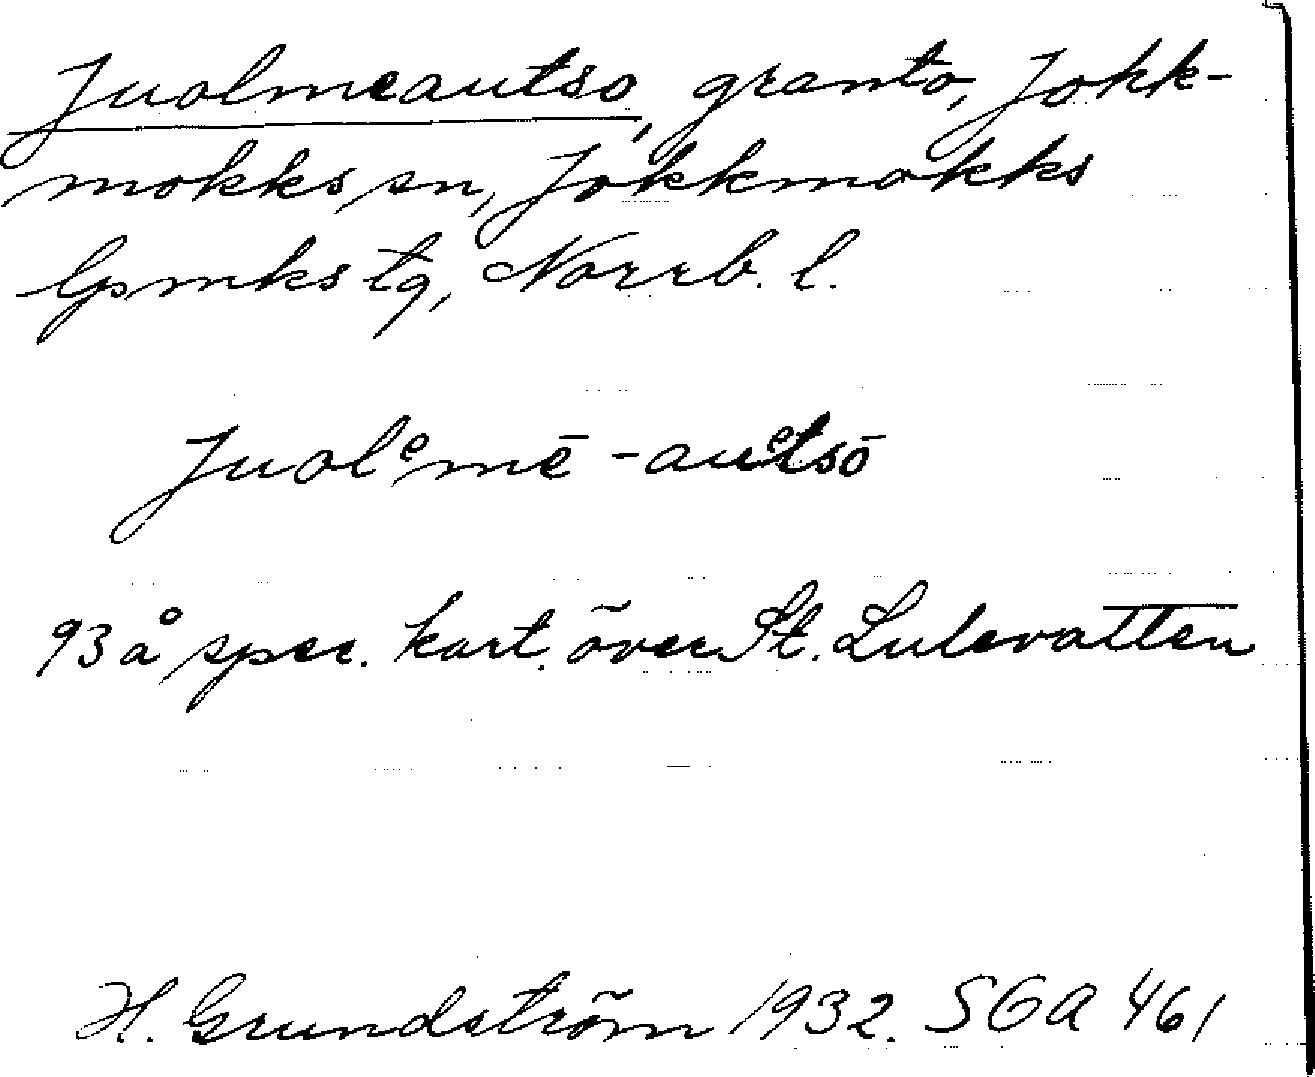 Juolmeautso, granto, Jokk-
mokks sn, Jokkmokks
lpmks tg, Norrb. l.
Juolᵉmē -auᵉtsō
93 å spec. kart. över St. Lulevatten
H. Grundström 1932. SOA 461